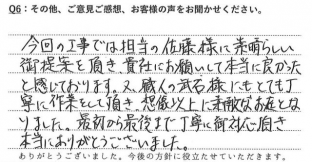 Q6：その他、ご意見ご感想、お客様の声をお聞かせください。
今回の工事では担当の佐藤様に素晴らしい
御提案を頂き、貴社にお願いして本当に良かった
と感じております。又、職人の武石様にもとても丁
寧に作業をして頂き、想像以上に素敵なお庭とな
りました。最初から最後まで丁寧に御対応頂き
本当にありがとうございました。
ありがとうございました。今後の方針に役立たせていただきます。